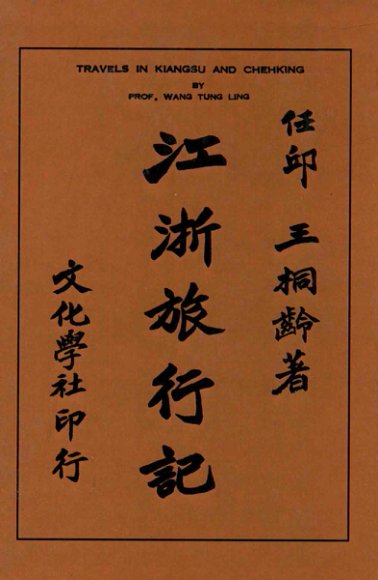 TRAVELS IN KIANGSU AND CHEHKING
BY
PROF. WANG TUNG LING
任邱 王桐齡著
江浙旅行記
文化學社印行